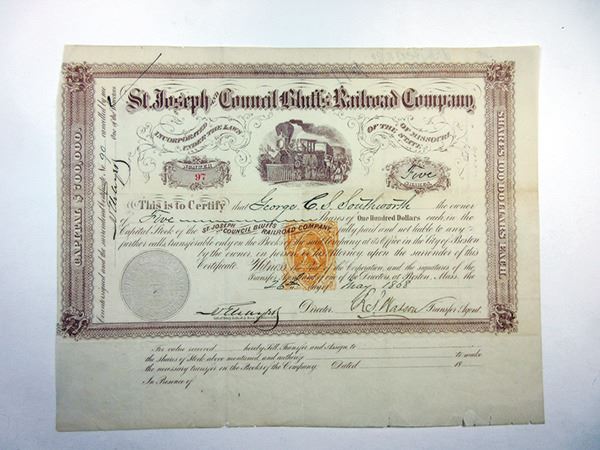 St. Joseph and Council Bluffs Railroad Company
INCORPORATED UNDER THE LAWS
OF THE STATE OF MISSOURI
NUMBER
97
Five
SHARES
CAPITAL $
SHARES 100 DOLLARS EACH
Countersigned and the surrendered Certificate No. 90 cancelled by me
One of the
This is to Certify that George C. S. Southworth the owner
Five Shares of One Hundred Dollars each, in the
Capital Stock of the ST. JOSEPH AND COUNCIL BLUFFS RAILROAD COMPANY fully paid and not liable to any
further calls, transferable only on the Books of the said Company at its Office in the City of Boston
by the owner, in person or by attorney upon the surrender of this
Certificate. Witness the Corporation, and the signatures of the
Transfer Agent and of one of the Directors, at Boston, Mass. the
day of May 1868
Director.
Transfer Agent.
For value received hereby Sell, Transfer, and Assign to
the Shares of Stock above mentioned, and authorize to make
the necessary transfer on the Books of the Company. Dated 18
In Presence of